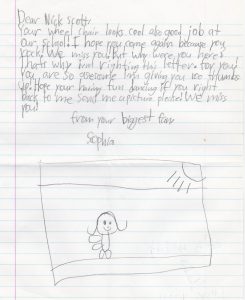 Dear Nick Scott,
Your wheel chair looks cool also good job at
our school. I hope you come again because you
rock. We miss you. But why were you here?
thats why im righting this letter for you!
you are so awesome Im giving you 100 thumbs
up. Hope your having fun dancing if you right
back to me send me a picture please! We miss
you!
from your biggest fan
Sophia